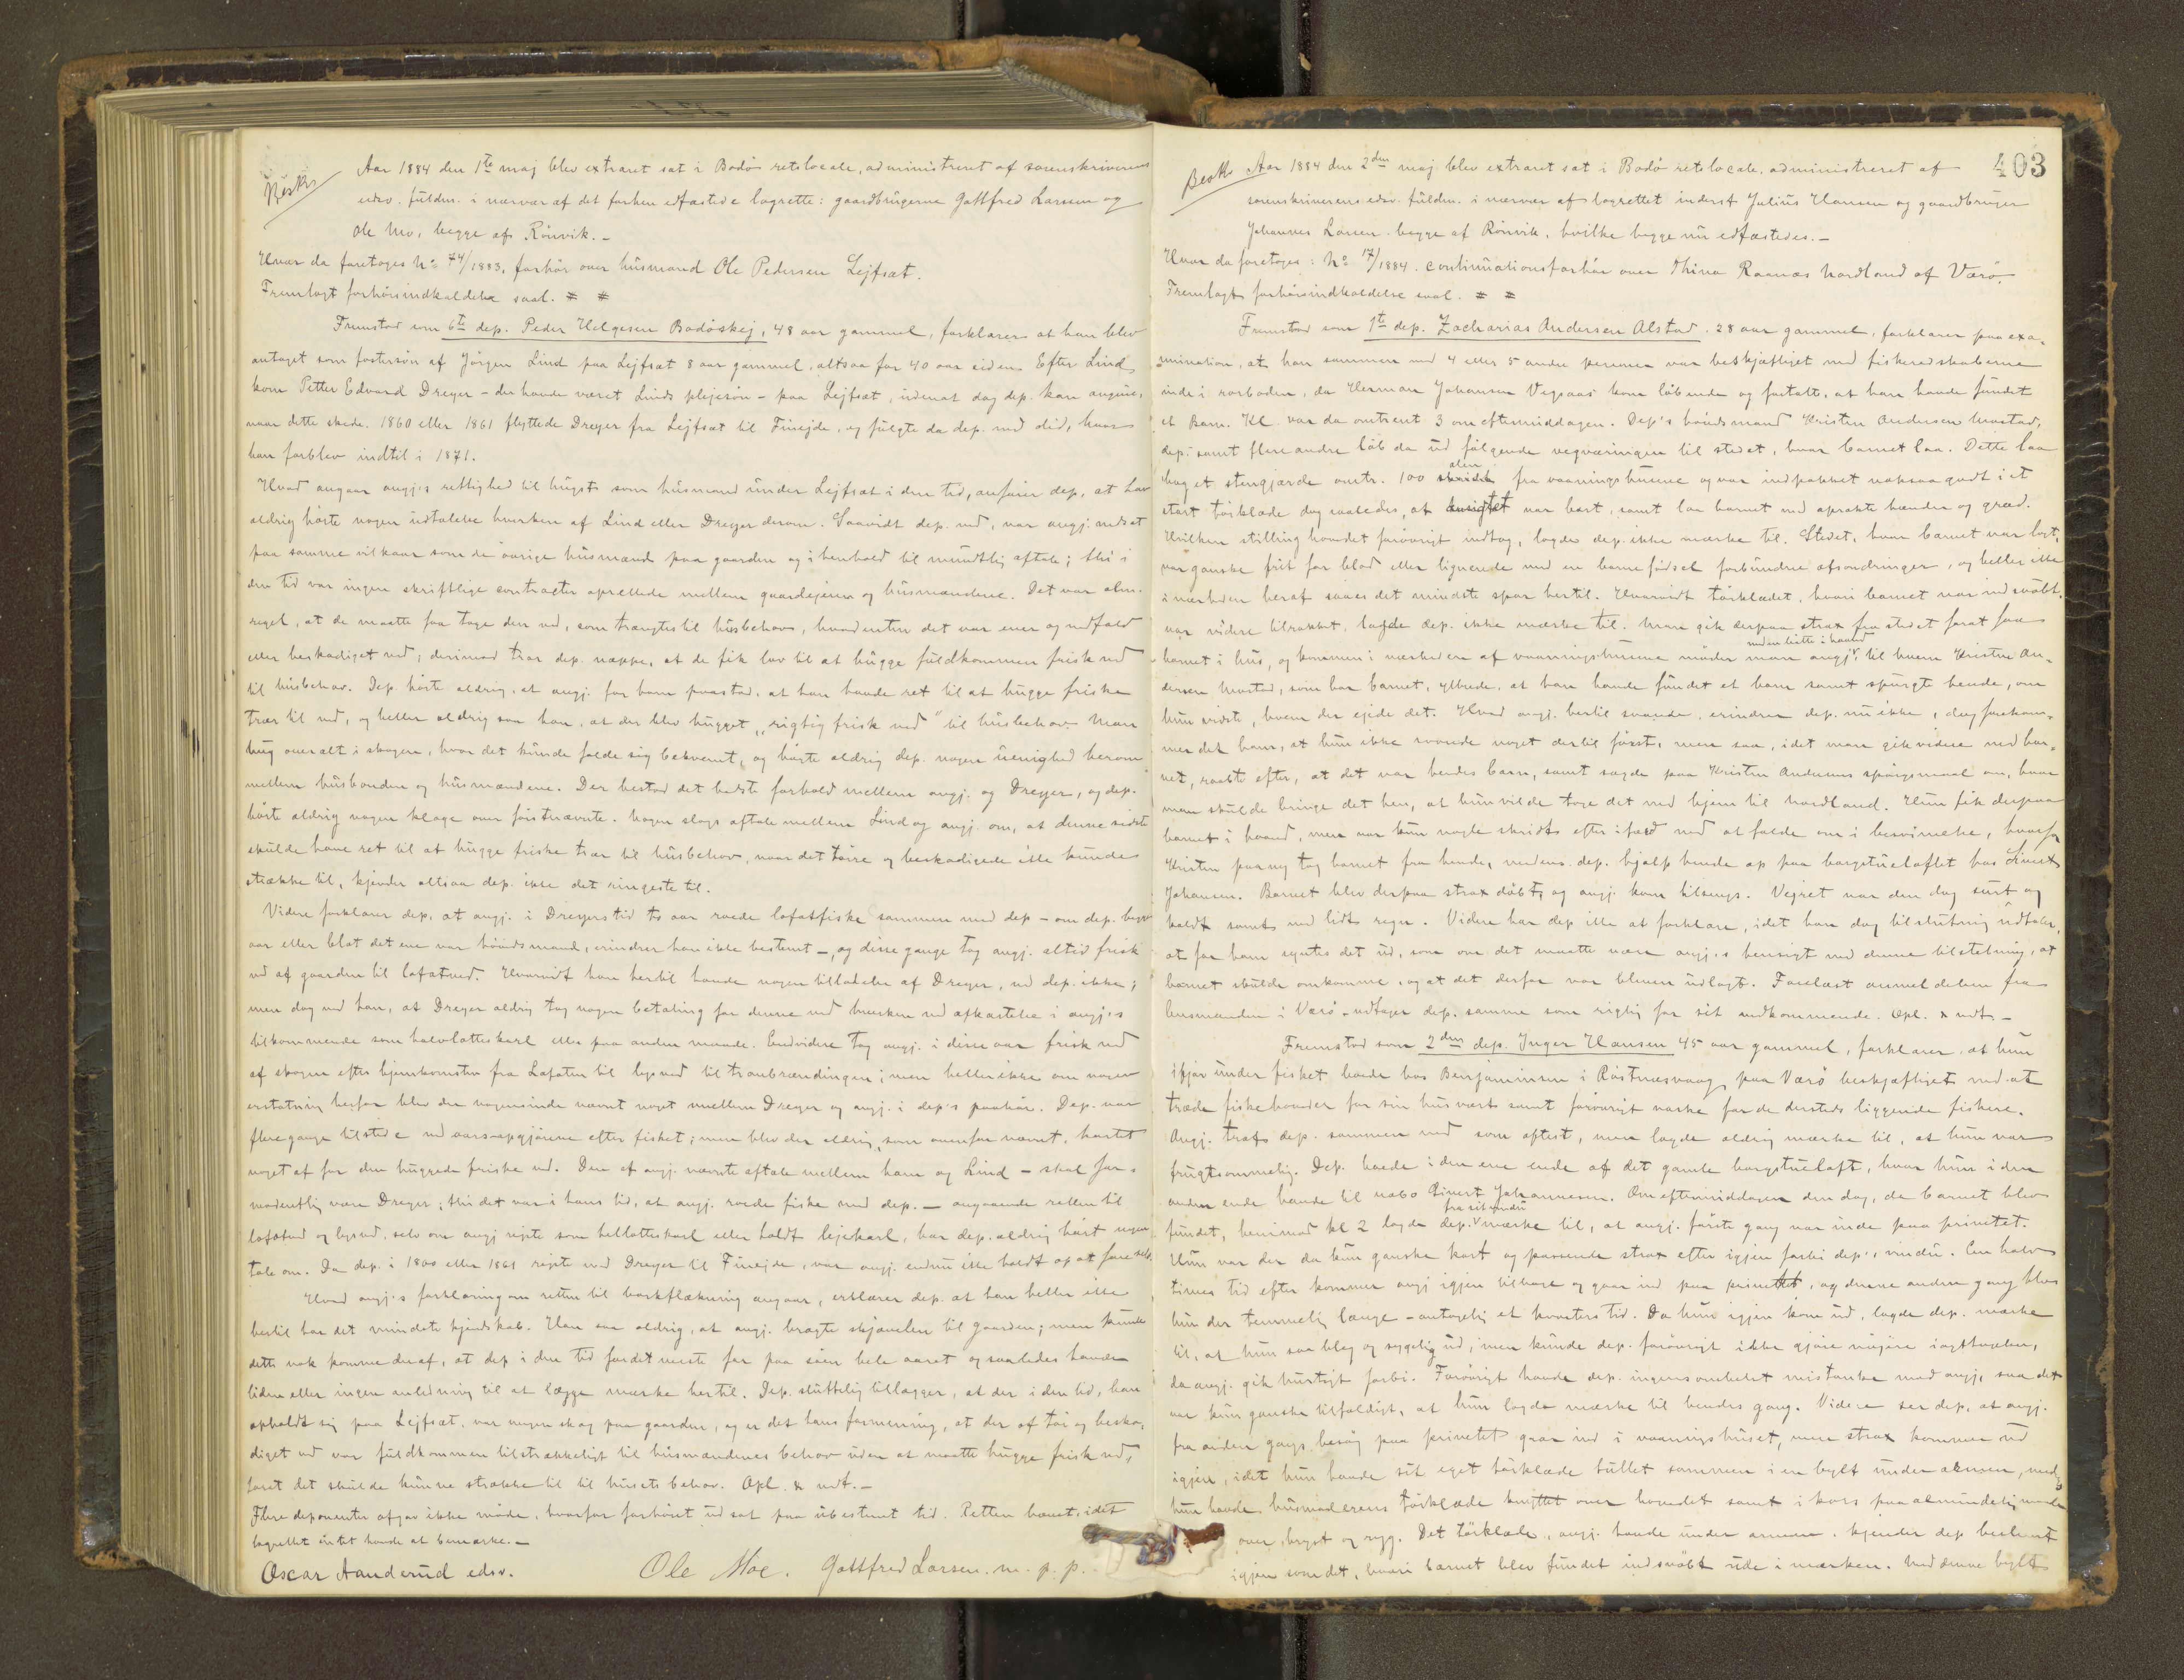 Beskr
Aar 1884 den 1te maj blev extraret sat i Bodö retslocale, administreret af sorenskriverens
edsv. fuldm. i nærvær af det forhen edfæstede lagrette: gaardbrugerne Gottfred Larsen og
Ole Mo, begge af Rönvik.–
Hvor da foretoges No 74/1883, forhör over husmand Ole Pedersen Lejfsæt.
Fremlagt forhörsindkaldelse saal. # #
Fremstod som 6te dep. Peder Helgesen Bodöskej, 48 aar gammel, forklarer at han blev
antaget som fostersön af Jörgen Lind paa Lejfsæt 8 aar gammel, altsaa for 40 aar siden. Efter Lind
kom Petter Edvard Dreyer – der havde været Linds plejesön – paa Lejfsæt, uden at dog dep. kan angive,
naar dette skede. 1860 eller 1861 flyttede Dreyer fra Lejfsæt til Finejde, og fulgte da dep. med did, hvor
han forblev indtil i 1871.
Hvad angaar angj.s rettighed til hugst som husmand under Lejfsæt i den tid, anförer dep., at han
aldrig hörte nogen udtalelse hverken af Lind eller Dreyer derom. Saavidt dep. ved, var angj. indsat
paa samme vilkaar som de övrige husmænd paa gaarden og i henhold til mundtlig aftale; thi i
den tid var ingen skriftlige contracter oprettede mellem gaardejeren og husmændene. Det var alm.
regel, at de maatte faa tage den ved, som trængtes til husbehov, hvad enten det var ener og vedfald
eller beskadiget ved; derimod tror dep. neppe, at de fik lov til at hugge fuldkommen frisk ved
til husbehov. Dep. hörte aldrig, at angj. for ham paastod, at han havde ret til at hugge friske
trær til ved, og heller aldrig saa han, at der blev hugget "rigtig frisk ved" til husbehov. Man
hug overalt i skogen, hvor det kunde falde sig bekvemt, og hörte aldrig dep. nogen uenighed herom
mellem husbonden og husmændene. Der bestod det bedste forhold mellem angj. og Dreyer, og dep.
hörte aldrig nogen klage over förstnævnte. Nogen slags aftale mellem Lind og angj. om, at denne sidste
skulde have ret til at hugge friske trær til husbehov, naar det törre og beskadigede ikke kunde
strække til, kjender altsaa dep. ikke det ringeste til.
Videre forklarer dep. at angj. i Dreyers tid to aar roede lofotfiske sammen med dep – om dep. begge
aar eller blot det ene var höidsmand, erindrer han ikke bestemt –, og disse gange tog angj. altid frisk
ved af gaarden til lofotved. Hvorvidt han hertil havde nogen tilladelse af Dreyer, ved dep. ikke;
men dog ved han, at Dreyer aldrig tog nogen betaling for denne ved hverken ved afkortelse i angj.s
tilkommende som halvlotteskarl eller paa anden maade. Endvidere tog angj. i disse aar frisk ved
af skogen efter hjemkomsten fra Lofoten til lysved til tranbrændingen; men heller ikke om nogen
erstatning herfor blev der nogensinde nævnt noget mellem Dreyer og angj. i dep's paahör. Dep. var
flere gange tilstede ved aarsopgjörene efter fisket; men blev der aldrig, som ovenfor nævnt, kortet
noget af for den huggede friske ved. Den af angj. nævnte aftale mellem ham og Lind – skal for-
modentlig være Dreyer; thi det var i hans tid, at angj. roede fiske med dep. – angaaende retten til
lofotved og lysved, selv om angj rejste som hellotteskarl eller holdt lejekarl, har dep. aldrig hört nogen
tale om. Da dep. i 1860 eller 1861 rejste med Dreyer til Finejde, var angj. endnu ikke holdt op at fare selv.
Hvad angj.s forklaring om retten til barkflækning angaar, erklærer dep. at han heller ikke
hertil har det mindste kjendskab. Han saa aldrig, at angj. bragte skjævelen til gaarden; men kunde
dette nok komme deraf, at dep i den tid for det meste for paa söen hele aaret og saaledes havde
liden eller ingen anledning til at lægge mærke hertil. Dep. sluttelig tillægger, at der i den tid, han
opholdt sig paa Lejfsæt, var megen skog paa gaarden, og er det hans formening, at der af tör og beska-
diget ved var fuldkommen tilstrækkeligt til husmændenes behov uden at maatte hugge frisk ved,
foret det skulde kunne strække til til husets behov. Opl. & vedt.–
Flere deponenter afgav ikke möde, hvorfor forhöret udsat paa ubestemt tid. Retten hævet, idet
lagrettet intet havde at bemærke.–
Oscar Aanderud edsv. Ole Moe. Gottfred Larsen. m. p. p.
403
Beskr Aar 1884 den 2den maj blev extraret sat i Bodö retslocale, administreret af
sorenskriverens edsv. fuldm. i nærvær af lagrettet inderst Julius Hansen og gaardbruger
Johannes Larsen begge af Rönvik, hvilke begge nu edfæstedes.–
Hvor da foretoges: No 17/1884. continuationsforhör over Thina Raanæs Nordland af Værö.
Fremlagt forhörsindkaldelse saal. # #
Fremstod som 1te dep. Zacharias Andersen Alstad, 28 aar gammel, forklarer paa exa-
mination, at han sammen med 4 eller 5 andre personer var beskjæftiget med fiskeredskaberne
inde i rorboden, da Herman Johansen Vegsaas kom löbende og fortalt, at han havde fundet
et Barn. Kl. var da omtrent 3 om eftermiddagen. Dep's höidsmand Kristen Andersen Mostad,
dep. samt flere andre löb da ud fölgende vegværingen til stedet, hvor barnet laa. Dette laa
bag et stengjærde omtr. 100 alen fra vaaningshusene og var indpakket noksaa godt i et
stort törklæde dog saaledes, at ansigtet var bart, samt laa barnet med oprakte hænder og græd.
Hvilken stilling hovedet forövrigt indtog, lagde dep. ikke mærke til. Stedet, hvor barnet var lagt,
var ganske frit for blod eller lignende med en barnefödsel forbundne afsondringer, og heller ikke
i nærheden heraf saaes det mindste spor hertil. Hvorvidt törklædet, hvori barnet var indsvöbt,
var videre tilsokket, lagde dep. ikke mærke til. Man gik derpaa strax fra stedet forat faa
barnet i hus, og kommen i nærheden af vaaningshusene möder man angj. med en bötte i haand, til hvem Kristen An-
dersen Mostad, som bar barnet, ytrede, at han havde fundet et barn samt spurgte hende, om
hun vidste, hvem der ejede det. Hvad angj. hertil svarede, erindrer dep. nu ikke, dog forekom-
mer det ham, at hun ikke svarede noget dertil först, men saa, idet man gik videre med bar-
net, raabte efter, at det var hendes barn, samt sagde paa Kristen Andersens spörgsmaal om, hvor
man skulde bringe det hen, at hun vilde tage det med hjem til Nordland. Hun fik derpaa
barnet i haand, men var kun nogle skridt efter ifærd med at falde om i besvimelse, hvorfor
Kristen paany tog barnet fra hende, medens dep. hjalp hende op paa borgstueloftet hos Sivert
Johansen. Barnet blev derpaa strax döbt, og angj. kom tilsengs. Vejret var den dag surt og
koldt samt med lidt regn. Videre har dep ikke at forklare, idet han dog tilslutning udtaler,
at for ham syntes det ud, som om det maatte være angj.s hensigt med denne tilstelning, at
barnet skulde omkomme, og at det derfor var bleven udlagt. Forelæst anmeldelsen fra
lensmanden i Værö, vedtager dep. samme som rigtig for sit vedkommende. Opl. & vedt.–
Fremstod som 2den dep. Inger Hansen 45 aar gammel, forklarer, at hun
ifjor under fisket havde hos Benjaminsen i Röstnesvaag paa Værö beskjæftiget med at
træde fiskehoveder for sin husvært samt forövrigt vaske for de dersteds liggende fiskere.
Angj. traf dep. sammen med som oftest, men lagde aldrig mærke til, at hun var
frugtsommelig. Dep. havde i den ene ende af det gamle borgstueloft, hvor hun i den
anden ende havde til nabo Sivert Johannesen. Om eftermiddagen den dag, da barnet blev
fundet, henimod kl 2 lagde dep. fra sit vindu mærke til, at angj. förste gang var inde paa privetet.
Hun var der da kun ganske kort og passerede strax efter igjen forbi dep's vindu. En halv
times tid efter kommer angj igjen tilbage og gaar ind paa privetet, og denne anden gang blev
hun der temmelig længe – antagelig et kvarters tid. Da hun igjen kom ud, lagde dep. mærke
til, at hun saa bleg og sygelig ud, men kunde dep. forövrigt ikke gjöre nöjere iagttagelser,
da angj. gik hurtigt forbi. Forövrigt havde dep. ingensomhelst mistanke mod angj., saa det
var kun ganske tilfældigt, at hun lagde mærke til hendes gang. Videre ser dep., at angj.
fra anden gangs besög paa privetet gaar ind i vaaningshuset, men strax kommer ud
igjen, idet hun havde sit eget törklæde tullet sammen i en bylt under armen, medens
hun havde husmoderens törklæde knyttet over hovedet samt i kors paa almindelig maade
over bryst og ryg. Det törklæde, angj. havde under armen, kjender dep. bestemt
igjen som det, hvori barnet blev fundet indsvöbt ude i marken. Med denne bylt